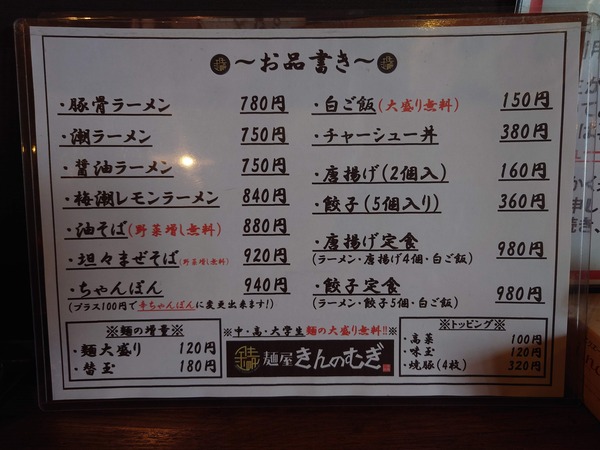 〜お品書き〜
・豚骨ラーメン 780円
・潮ラーメン 750円
・醤油ラーメン 750円
・梅潮レモンラーメン 840円
・油そば(野菜増し無料) 880円
・坦々まぜそば(野菜増し無料) 920円
・ちゃんぽん 940円
(プラス100円で辛ちゃんぽんに変更出来ます!)
・白ご飯(大盛り無料) 150円
・チャーシュー丼 380円
・唐揚げ(2個入) 160円
・餃子(5個入り) 360円
・唐揚げ定食 980円
(ラーメン・唐揚げ4個・白ご飯)
・餃子定食 980円
(ラーメン・餃子5個・白ご飯)
※麺の増量※
・麺大盛り 120円
・替玉 180円
※中・高・大学生麺の大盛り無料!!※
麺屋きんのむぎ
※トッピング※
・高菜 100円
・味玉 120円
・焼豚(4枚) 320円